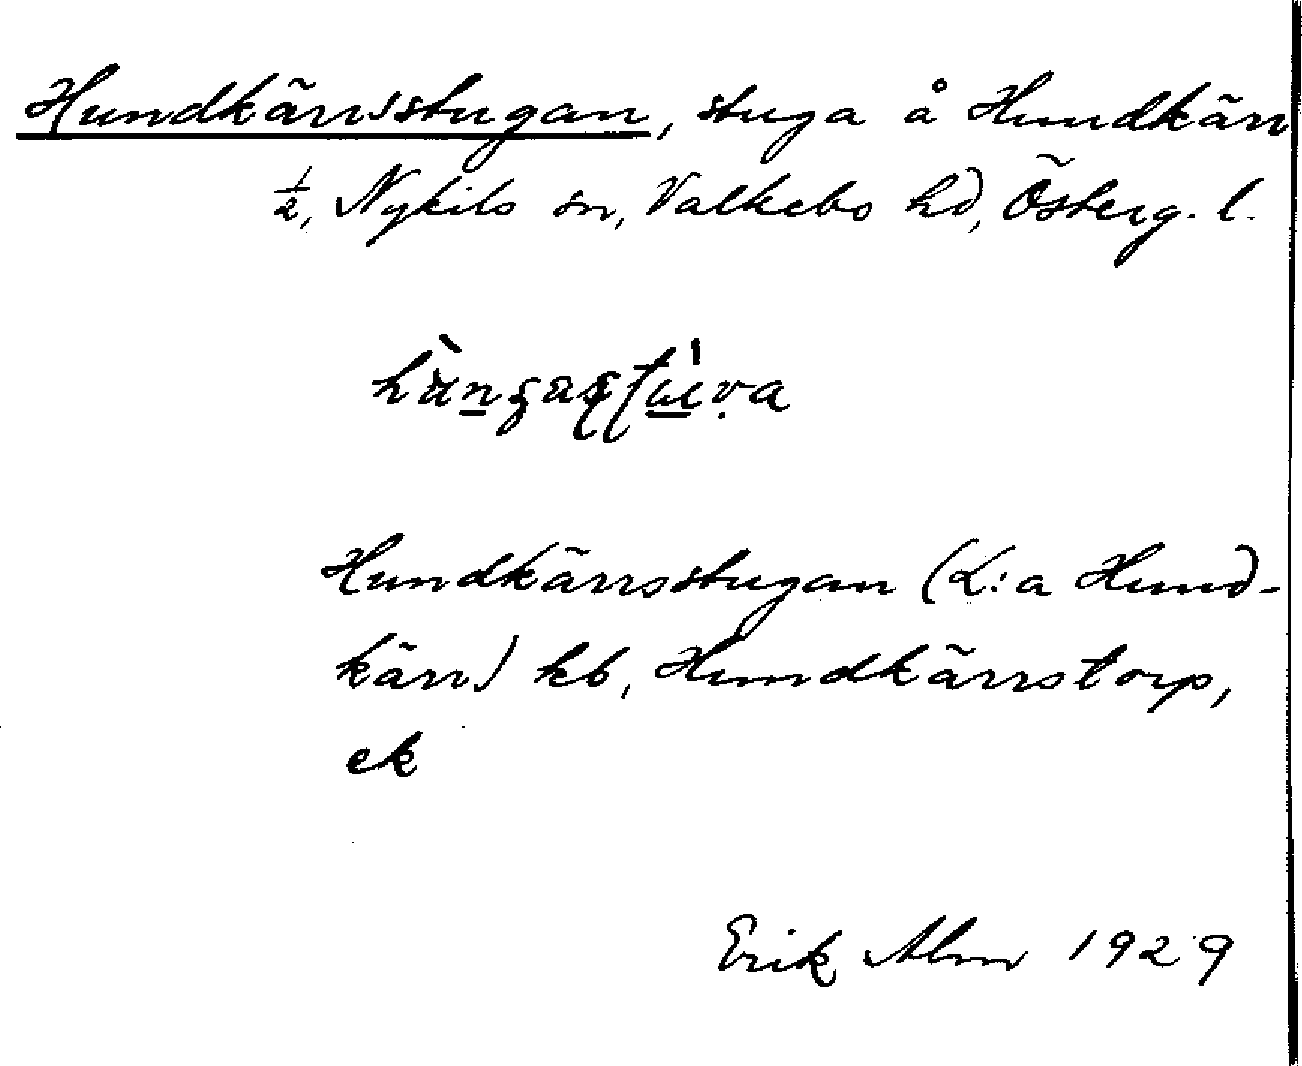 Hundkärrsstugan, stuga å Hundkärr
1/2, Nykils sn, Valkebo hd, Österg. l.
Hundkärrsstugan (L:a Hund-
kärr) kb, Hundkärrstorp,
ek
Erik Alm 1929